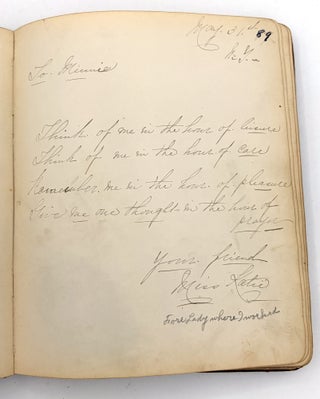 May 31. 89
N.Y.
To Minnie
Think of me in the hour of leisure
Think of me in the hour of care
Remember me in the hour of pleasure
Give me one thought in the hour of
prayer
Your friend
Miss Katie
Fore Lady where I worked